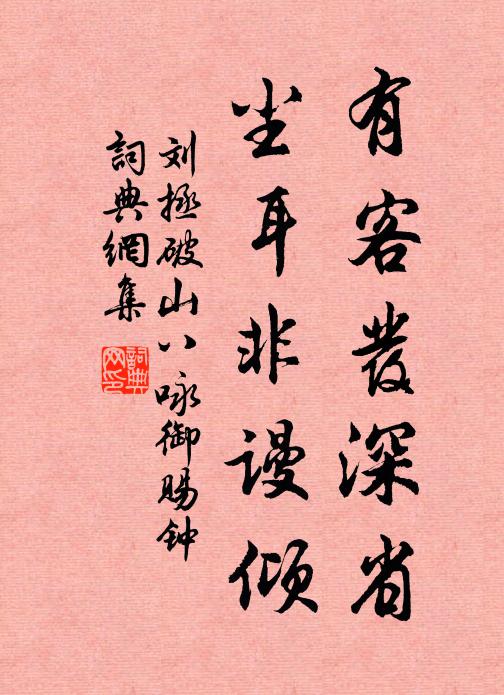 有客發深省
尘耳非謾倾
刘拯破山八咏御赐钟
詞典網集
詞典网印